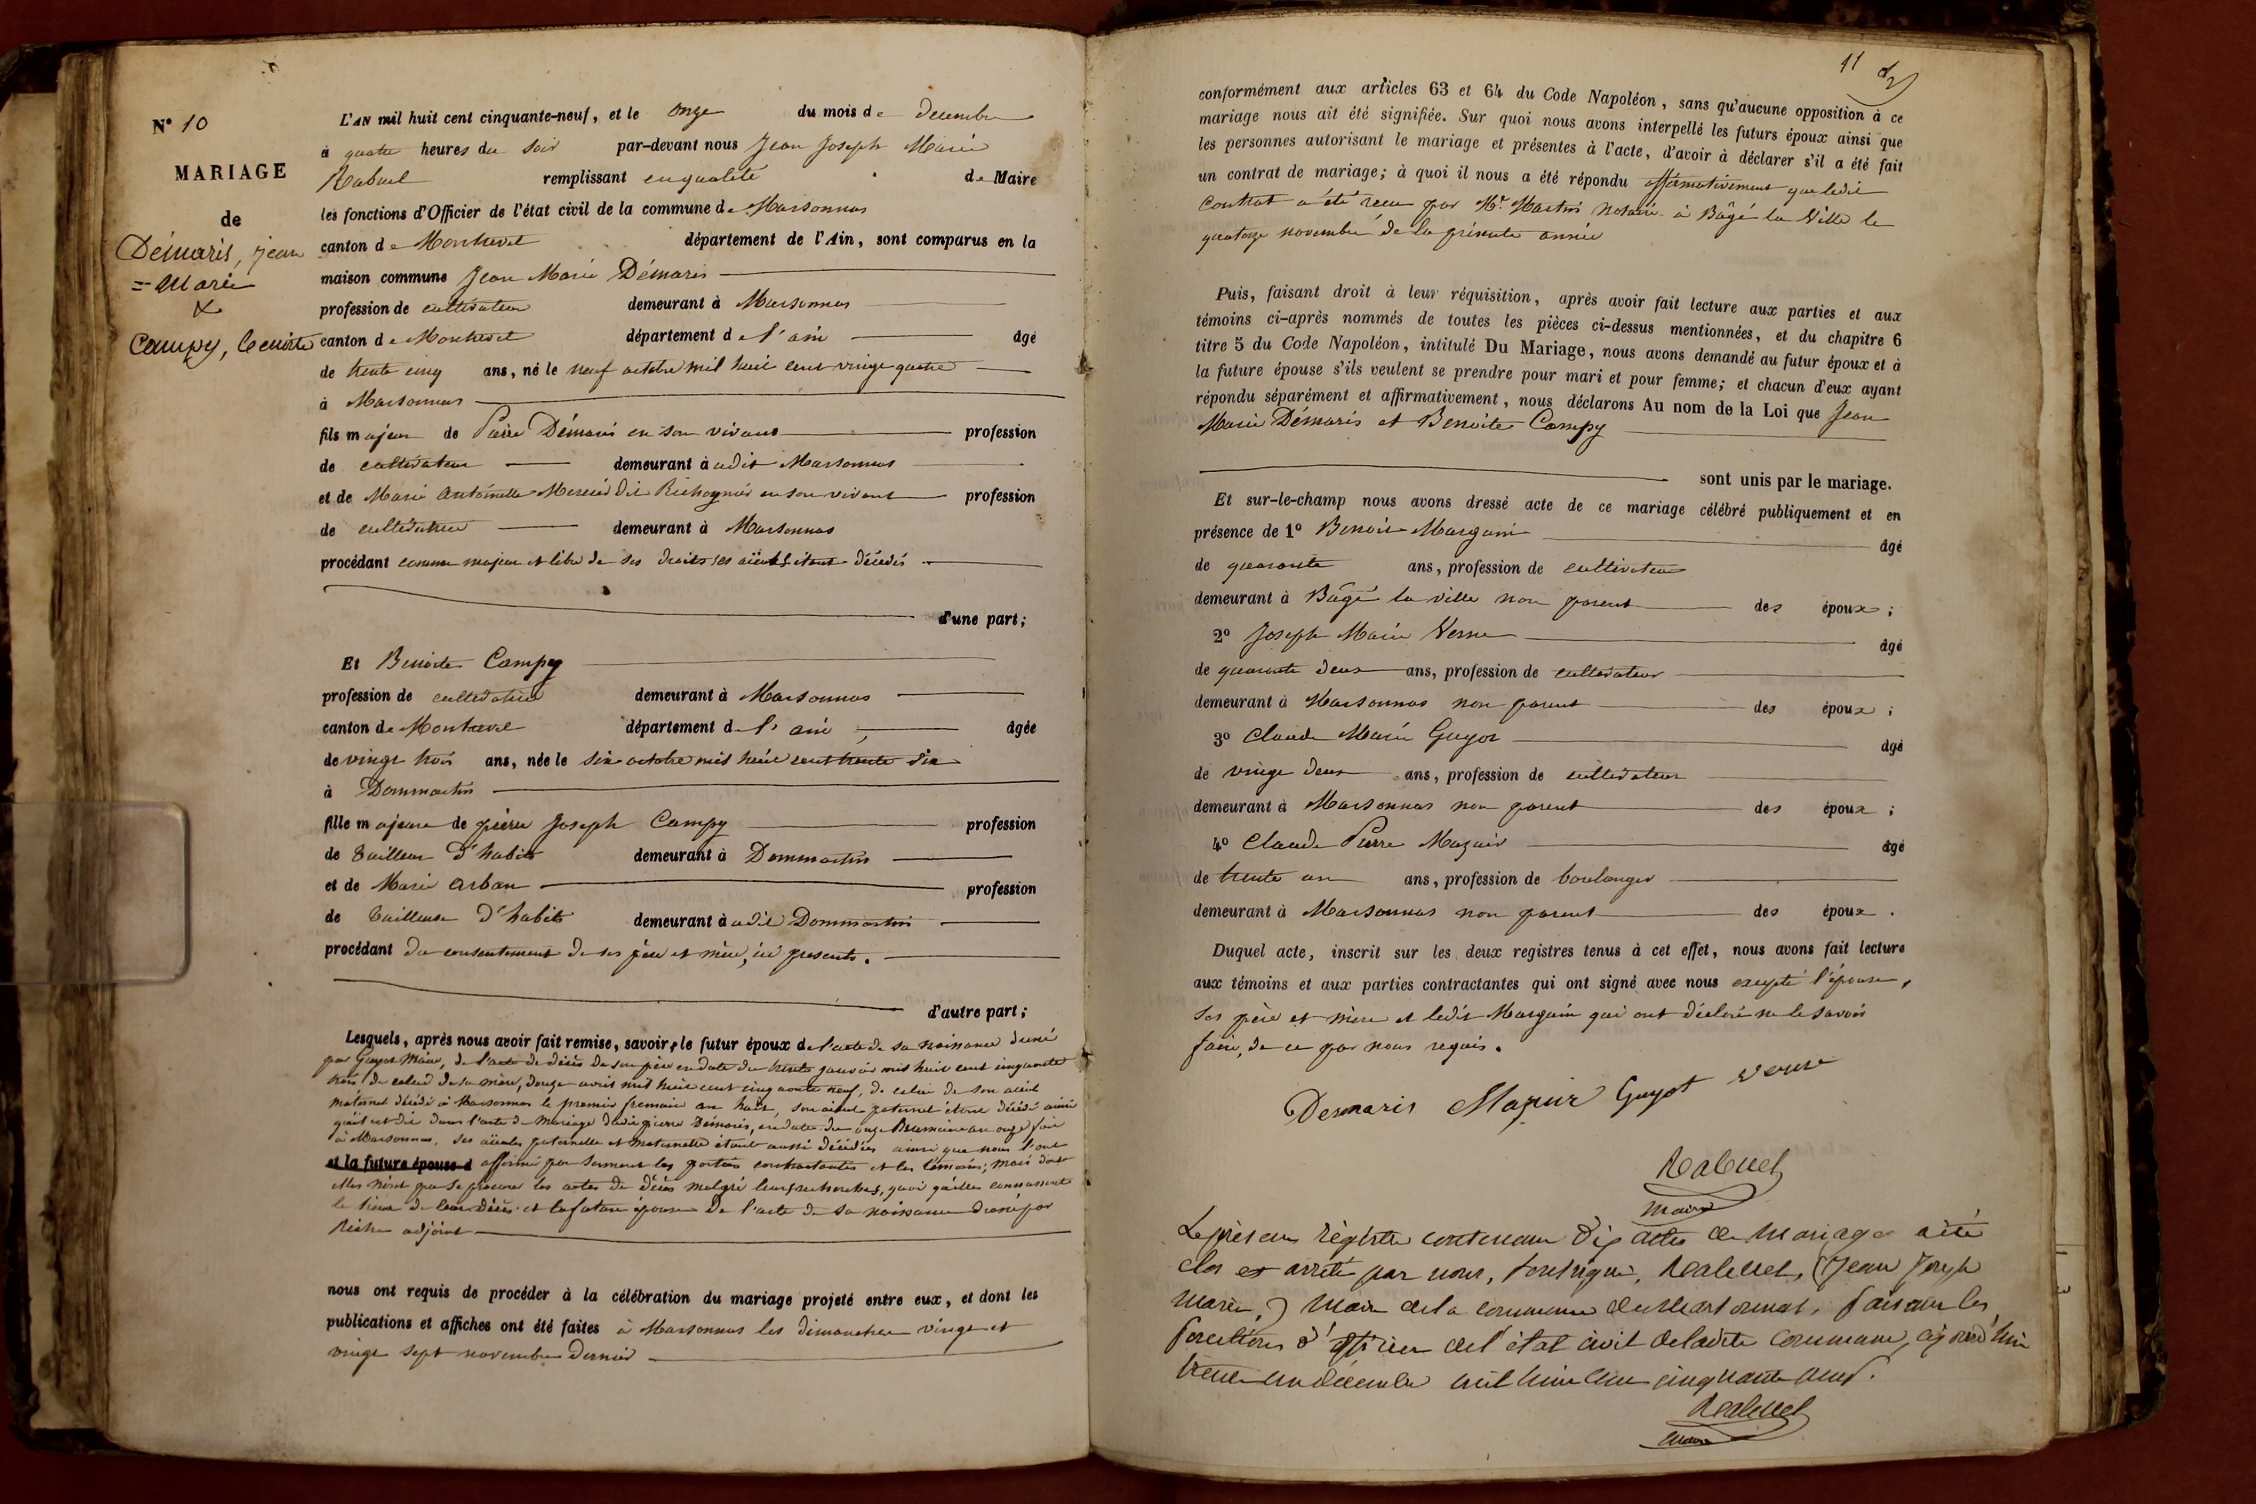 N° 10
MARIAGE
de
Démaris, Jean
= Marie
&
Campy, Benoite
L'AN mil huit cent cinquante-neuf, et le onze du mois de Decembre
à quatre heures du soir par-devant nous Jean Joseph Marie
Rabuel remplissant en qualité de Maire
les fonctions d'Officier de l'état civil de la commune de Marsonnas
canton de Montrevel département de l'Ain, sont comparus en la
maison commune Jean Marie Démaris
profession de cultivateur demeurant à Marsonnas
canton de Montrevel département de l'ain âgé
de trente cinq ans, né le neuf octobre mil huit cent vingt quatre
à Marsonnas
fils majeur de Pierre Démaris en son vivant profession
de cultivateur demeurant à udit Marsonnas
et de Marie Antoinette Mercier dit en son vivant profession
de cultivatrice demeurant à Marsonnas
procédant comme majeur et libre de ses droits ses aïeuls étant décédés
d'une part;
Et Benoite Campy
profession de cultivatrice demeurant à Marsonnas
canton de Montrevel département de l'ain, âgée
de vingt trois ans, née le six octobre mil huit cent trente six
à Dommartin
fille majeure de pierre Joseph Campy profession
de tailleur d'habits demeurant à Dommartin
et de Marie Arban profession
de tailleuse d'habits demeurant à udit Dommartin
procédant du consentement de ses père et mère, ici presents.
d'autre part;
Lesquels, après nous avoir fait remise, savoir, le futur époux de l'acte de sa naissance dressé
par Guyot Maire, de l'acte de décès de son père en date du trente janvier mil huit cent cinquante
trois de celui de sa mère, douze avril mil huit cent cinquante neuf, de celui de son aieul
maternel décédé à Marsonnas le premier frimaire an huit, son aieul paternel étant décédé ainsi
qu'il est dit dans l'acte de mariage dudit pierre Démaris, en date du onze Brumaire an onze fait
à Marsonnas, ses aïeules paternelle et maternelle étant aussi décédées ainsi que nous l'ont
et la future épouse d affirmé par serment les parties contractantes et les témoins; mais dont
elles n'ont pu se procurer les actes de décès malgré leurs recherches, quoi qu'elles connaissent
le lieu de leur décès et la future épouse de l'acte de sa naissance dressé par
adjoint
nous ont requis de procéder à la célébration du mariage projeté entre eux, et dont les
publications et affiches ont été faites à Marsonnas les dimanches vingt et
vingt sept novembre dernier
11
conformément aux articles 63 et 64 du Code Napoléon, sans qu'aucune opposition à ce
mariage nous ait été signifiée. Sur quoi nous avons interpellé les futurs époux ainsi que
les personnes autorisant le mariage et présentes à l'acte, d'avoir à déclarer s'il a été fait
un contrat de mariage; à quoi il nous a été répondu affirmativement que ledit
contrat a été recu par Mr. Martin notaire à Bâgé la Ville le
quatorze novembre de la présente année
Puis, faisant droit à leur réquisition, après avoir fait lecture aux parties et aux
témoins ci-après nommés de toutes les pièces ci-dessus mentionnées, et du chapitre 6
titre 5 du Code Napoléon, intitulé Du Mariage, nous avons demandé au futur époux et à
la future épouse s'ils veulent se prendre pour mari et pour femme; et chacun d'eux ayant
répondu séparément et affirmativement, nous déclarons Au nom de la Loi que Jean
Marie Démaris et Benoite Campy
sont unis par le mariage.
Et sur-le-champ nous avons dressé acte de ce mariage célébré publiquement et en
présence de 1° Benoit Margain âgé
de quarante ans, profession de cultivateur
demeurant à Bâgé la ville non parent des époux;
2° Joseph Marie Verne âgé
de quarante deux ans, profession de cultivateur
demeurant à Marsonnas non parent des époux;
3° Claude Marie Guyot âgé
de vingt deux ans, profession de cultivateur
demeurant à Marsonnas non parent des époux;
4° Claude Pierre Mazuir âgé
de trente un ans, profession de boulanger
demeurant à Marsonnas non parent des époux.
Duquel acte, inscrit sur les deux registres tenus à cet effet, nous avons fait lecture
aux témoins et aux parties contractantes qui ont signé avec nous excepté l'épouse,
ses père et mère et ledit Margain qui ont déclaré ne le savoir
faire, de ce par nous requis.
Desmaris Mazuir Guyot Verne
Rabuel
maire
Le présent régistre contenant dix actes de mariage a été
clos et arrêté par nous, soussigné, Rabuel, (Jean Joseph
Marie,) Maire de la commune de Marsonnas, faisant les
fonctions d'officier de l'état civil de ladite commune, aujourd'hui
trente un décembre mil huit cent cinquante neuf.
Rabuel
maire